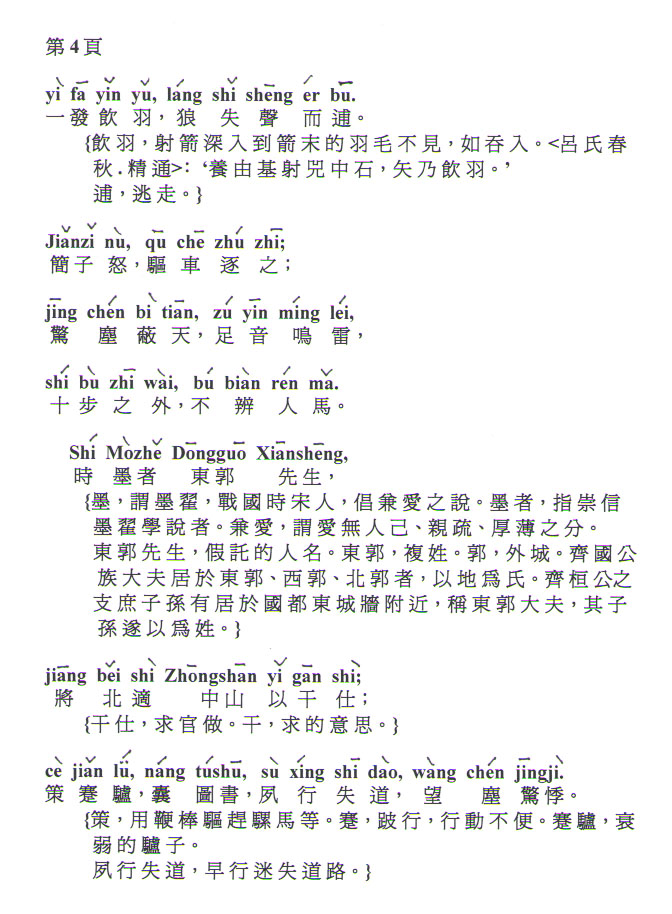 第4頁
yì fā yǐn yǔ, láng shǐ shēng ér bū.
一發飲羽，狼失聲而逋。
{飲羽，射箭深入到箭末的羽毛不見，如吞入。<呂氏春
秋.精通>：‘養由基射兕中石，矢乃飲羽。’
逋，逃走。}
Jiǎnzǐ nù, qū chē zhú zhī;
簡子怒，驅車逐之；
jīng chén bì tiān, zú yīn míng léi,
驚塵蔽天，足音鳴雷，
shí bù zhī wài, bú biàn rén mǎ.
十步之外，不辨人馬。
Shí Mòzhě Dōngguō Xiānshēng,
時墨者東郭先生，
{墨，謂墨翟，戰國時宋人，倡兼愛之說。墨者，指崇信
墨翟學說者。兼愛，謂愛無人己、親疏、厚薄之分。
東郭先生，假託的人名。東郭，複姓。郭，外城。齊國公
族大夫居於東郭、西郭、北郭者，以地爲氏。齊桓公之
支庶子孫有居於國都東城牆附近，稱東郭大夫，其子
孫遂以爲姓。}
jiāng běi shì Zhōngshān yǐ gān shì;
將北適中山以干仕；
{干仕，求官做。干，求的意思。}
cè jiǎn lǘ, náng túshū, sù xíng shī dào, wàng chén jīngjì.
策蹇驢，囊圖書，夙行失道，望塵驚悸。
{策，用鞭棒驅趕騾馬等。蹇，跛行，行動不便。蹇驢，衰
弱的驢子。
夙行失道，早行迷失道路。}